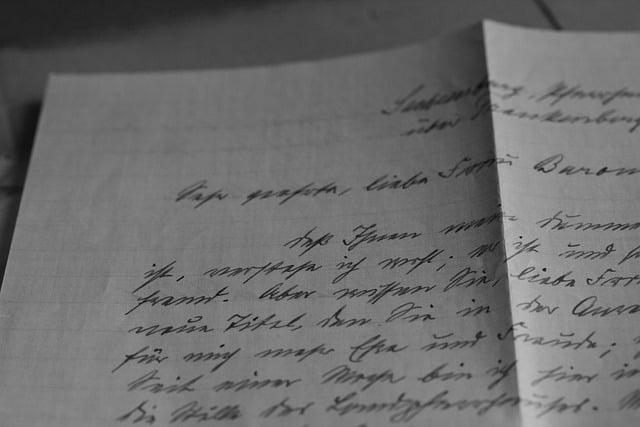 über Frankenberg
Sehr geehrte, liebe Frau Baron
daß Ihnen mein dumme
ist, verstehe ich wohl; er ist und
fremd. Aber wissen Sie, liebe Frau
neue Titel, den Sie in der
für mich mehr Ehre und Freude;
Seit einer Woche bin ich hier in
die Stille des Landpfarrhauses.